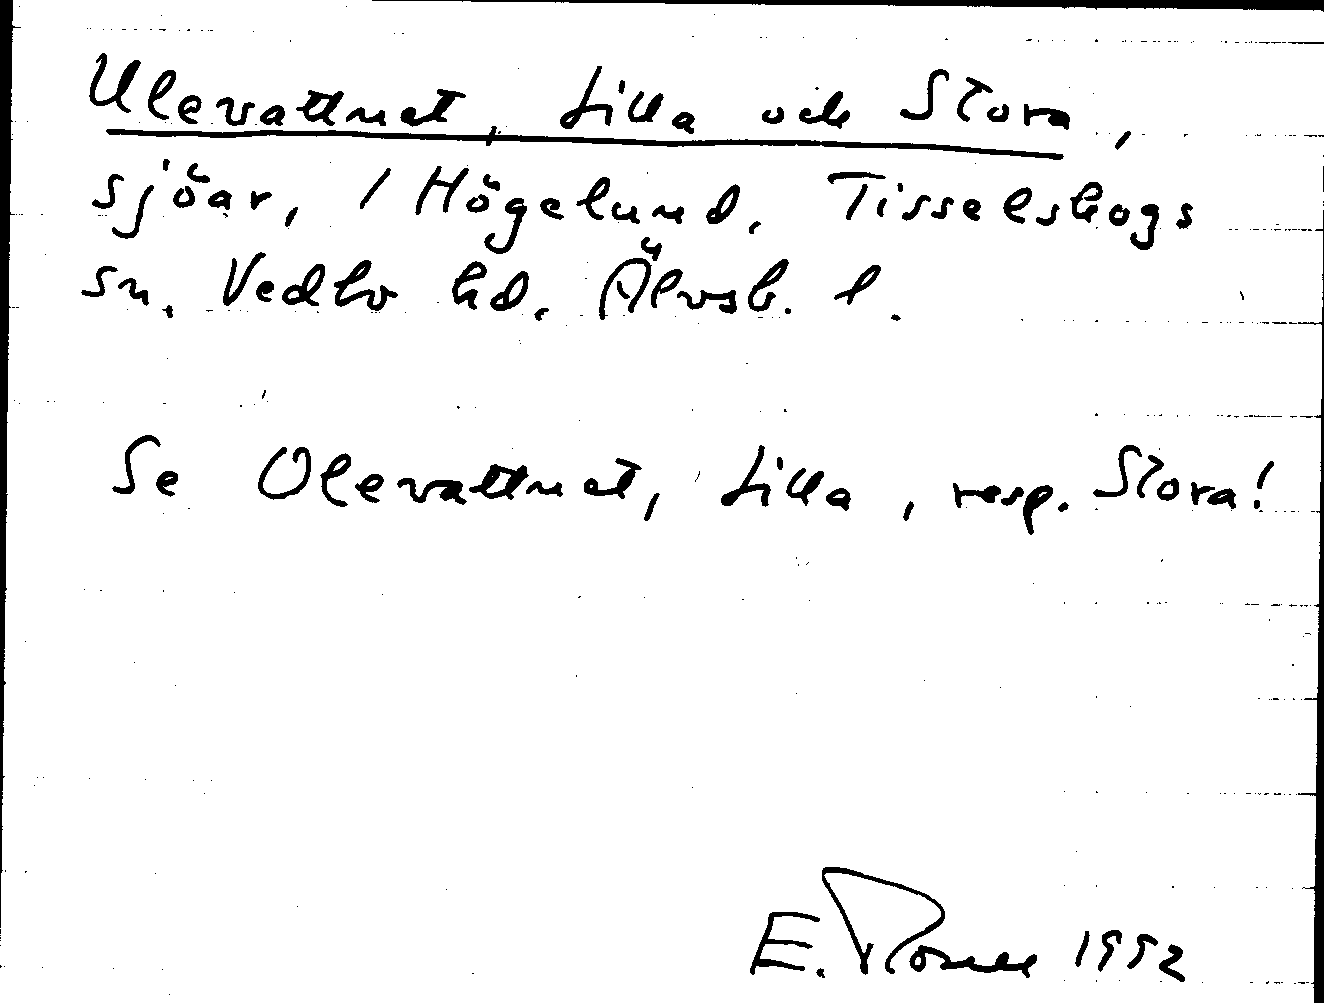 Ulevattnet, Lilla och Stora,
sjöar, / Högelund, Tisselskogs
sn. Vedbo hd. Älvsb. l.
Se Olevattnet, Lilla, resp. Stora!
E. 1992